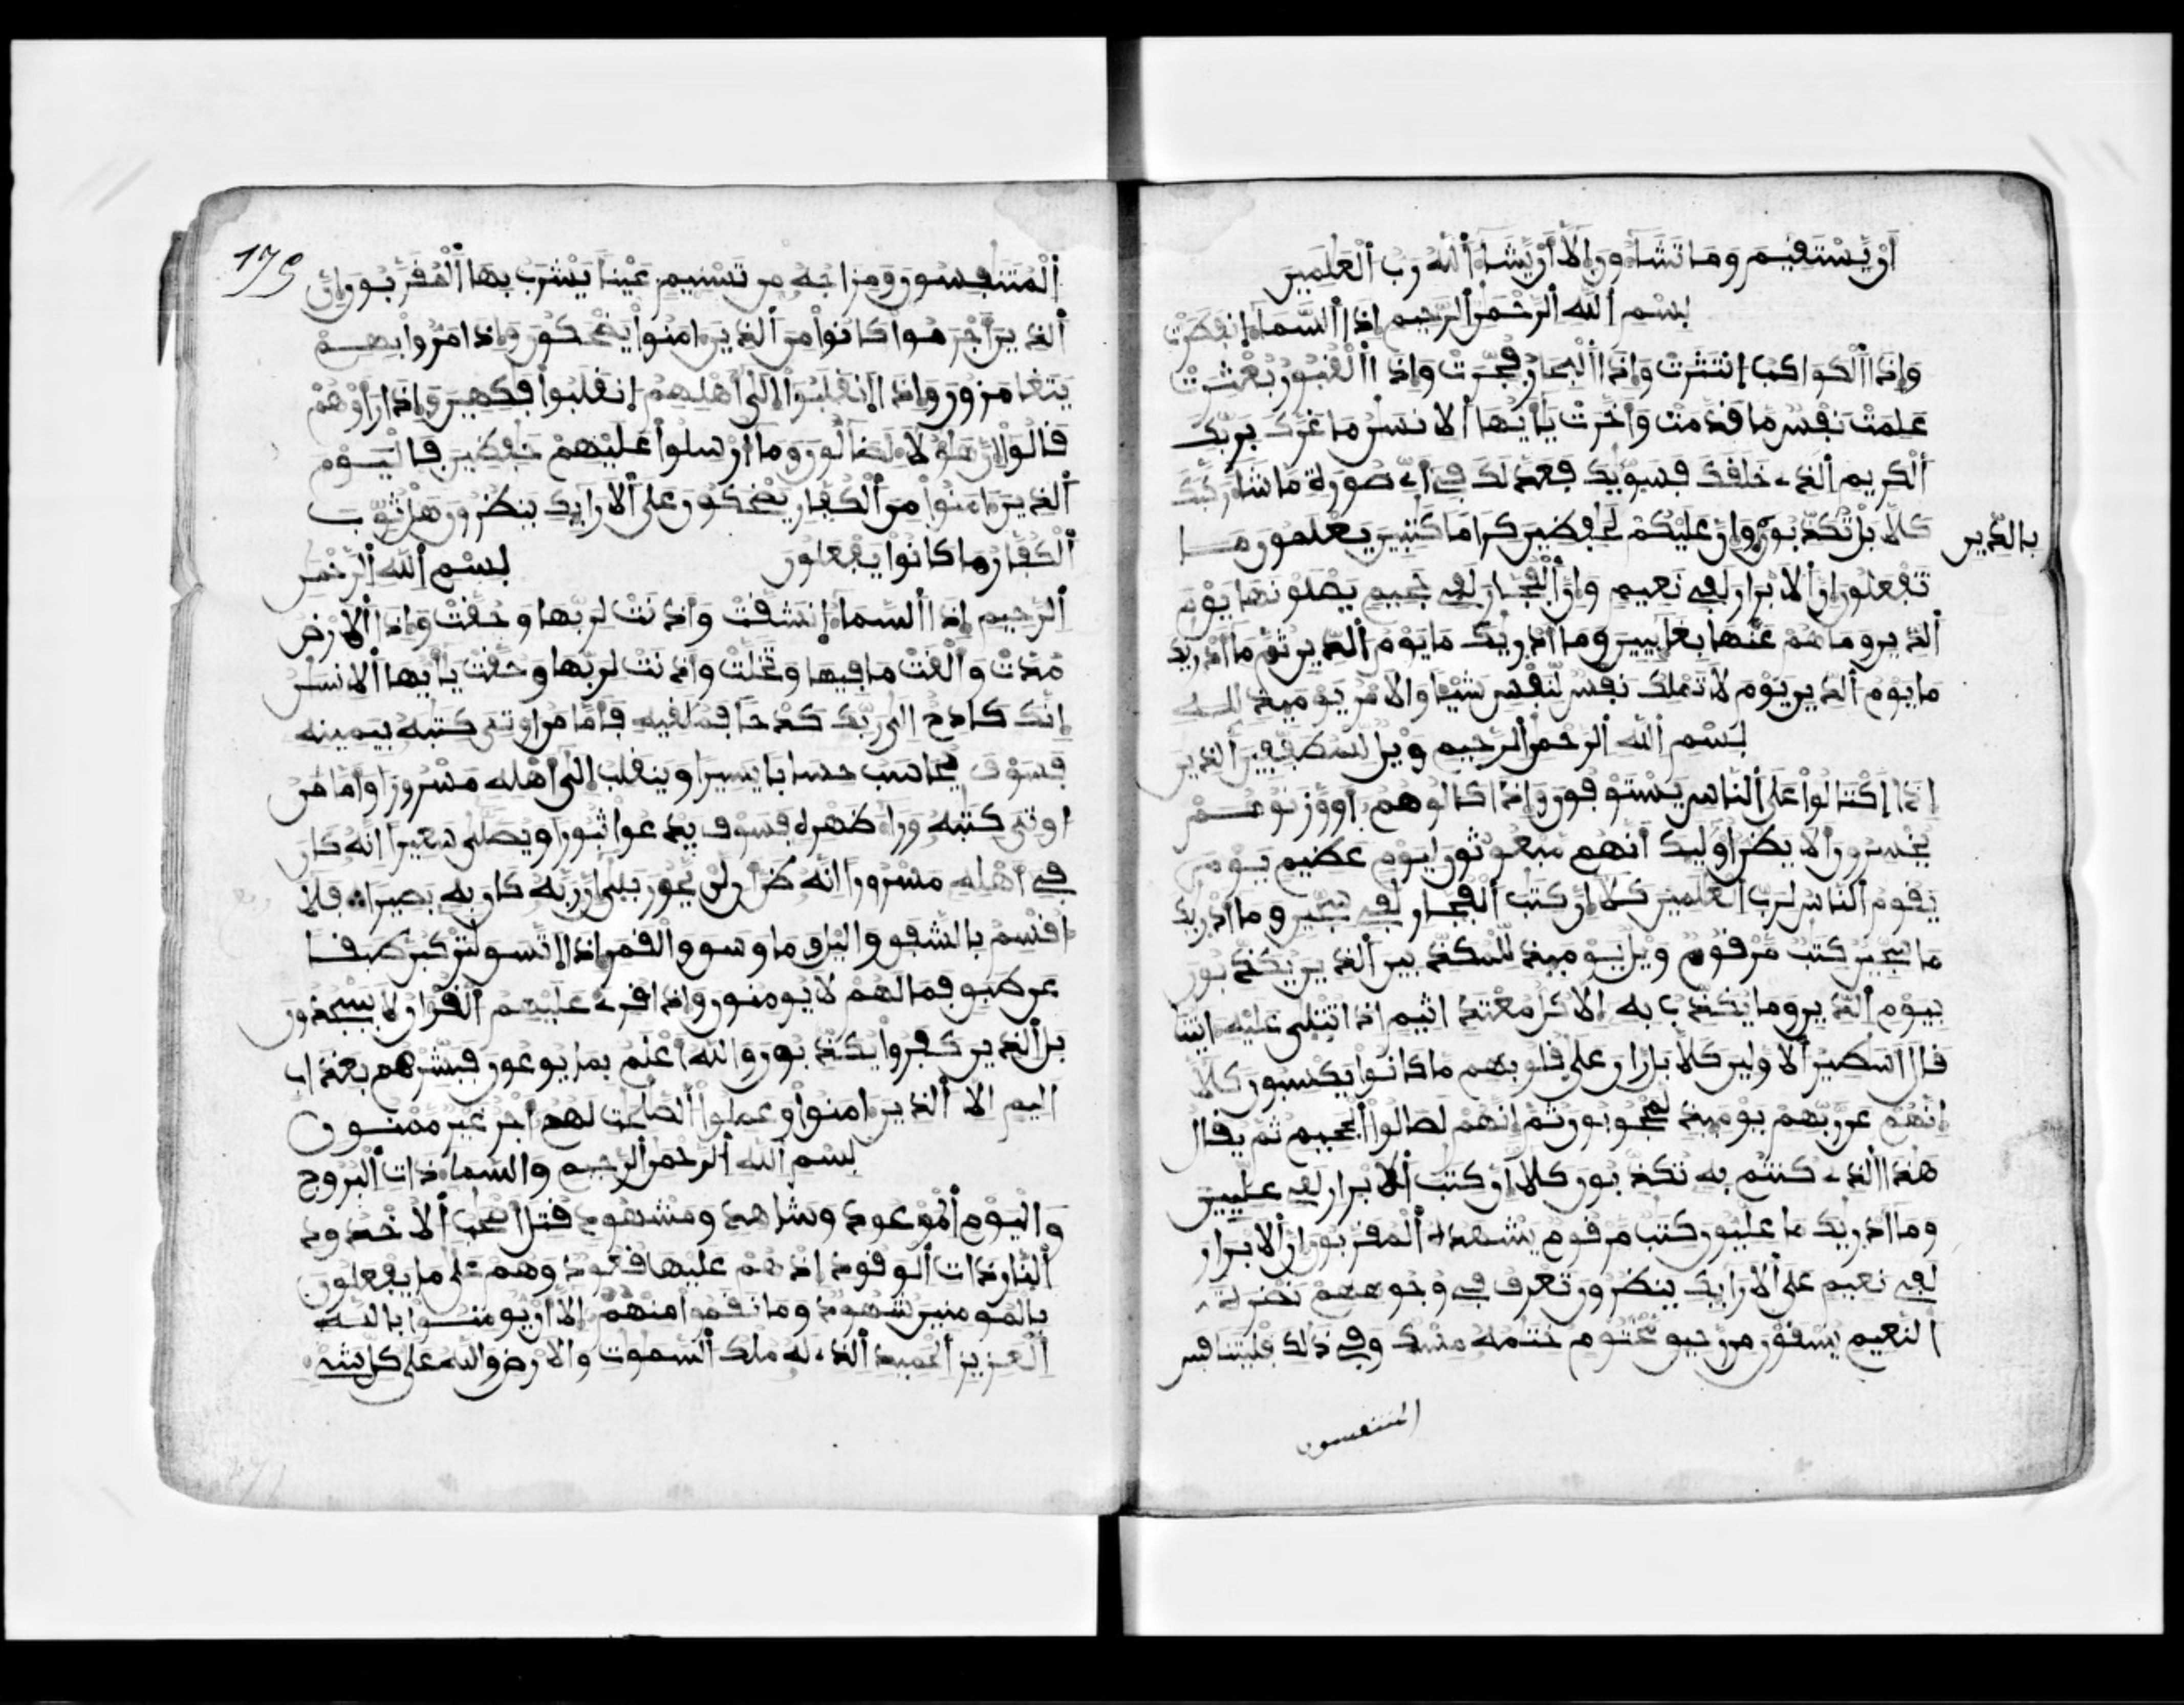 أن يستقيم وما تشاءون إلا أن يشاء الله رب العلمين
بسم الله الرحمن الرحيم إذا السماء انفطرت
وإذا الكواكب انتثرت وإذا البحار فجرت وإذا القبور بعثرت
علمت نفس ما قدمت وأخرت يأيها الانسن ما غرك بربك
الكريم الذے خلقك فسويك فعدلك في أي صورة ما شاء ركبك
كلا بل تكذبون بالدين وإن عليكم لحفظين كراما كتبين يعلمون ما
تفعلون إن الابرار لفي نعيم وإن الفجار لفي جحيم يصلونها يوم
الدين وما هم عنها بغايبين وما أدريك ما يوم الدين ثم ما أدريك
ما يوم الدين يوم لا تملك نفس لنفس شيا والامر يوميذ لله
بسم الله الرحمن الرحيم ويل للمطففين الذين
إذا اكتالوا على الناس يستوفون وإذا كالوهم أو وزنوهم
يخسرون ألا يظن أوليك أنهم مبعوثون ليوم عظيم يوم
يقوم الناس لرب العلمين كلا إن كتب الفجار لفي سجين وما أدريك
ما سجين كتب مرقوم ويل يوميذ للمكذبين الذين يكذبون
بيوم الدين وما يكذب به إلا كل معتد اثيم إذا تتلى عليه ايتنا
قال اسطير الاولين كلا بل ران على قلوبهم ما كانوا يكسبون كلا
إنهم عن ربهم يوميذ لمحجوبون ثم إنهم لصالوا الجحيم ثم يقال
هذا الذے كنتم به تكذبون كلا إن كتب الابرار لفي عليين
وما أدريك ما عليون كتب مرقوم يشهده المقربون إن الابرار
لفي نعيم على الارايك ينظرون تعرف في وجوههم نضرة
النعيم يسقون من رحيق مختوم ختمه مسك وفي ذلك فليتنافس
المتنفسون
175
المتنفسون ومزاجه من تسنيم عينا يشرب بها المقربون إن
الذين أجرموا كانوا من الذين ءامنوا يضحكون وإذا مروا بهم
يتغامزون وإذا انقلبوا إلى أهلهم انقلبوا فكهين وإذا رأوهم
قالوا إن هؤلاء لضالون وما أرسلوا عليهم حفظين فاليوم
الذين ءامنوا من الكفار يضحكون على الارايك ينظرون هل ثوب
الكفار ما كانوا يفعلون بسم الله الرحمن
الرحيم إذا السماء انشقت وأذنت لربها وحقت وإذا الارض
مدت وألقت ما فيها وتخلت وأذنت لربها وحقت يأيها الانسن
إنك كادح إلى ربك كدحا فملقيه فأما من اوتي كتبه بيمينه
فسوف يحاسب حسابا يسيرا وينقلب إلى أهله مسرورا وأما من
اوتي كتبه وراء ظهره فسوف يدعوا ثبورا ويصلى سعيرا انه كان
في أهله مسرورا انه ظن أن لن يحور بلى إن ربه كان به بصيرا فلا
أقسم بالشفق واليل وما وسق والقمر إذا اتسق لتركبن طبقا
عن طبق فما لهم لا يومنون وإذا قرئ عليهم القران لا يسجدون
بل الذين كفروا يكذبون والله أعلم بما يوعون فبشرهم بعذاب
اليم الا الذين ءامنوا وعملوا الصلحت لهم أجر غير ممنون
بسم الله الرحمن الرحيم والسماء ذات البروج
واليوم الموعود وشاهد ومشهود قتل أصحب الاخدود
النار ذات الوقود إذ هم عليها قعود وهم على ما يفعلون
بالمومنين شهود وما نقموا منهم إلا أن يومنوا بالله
العزيز الحميد الذے له ملك السموت والارض والله على كل شيء